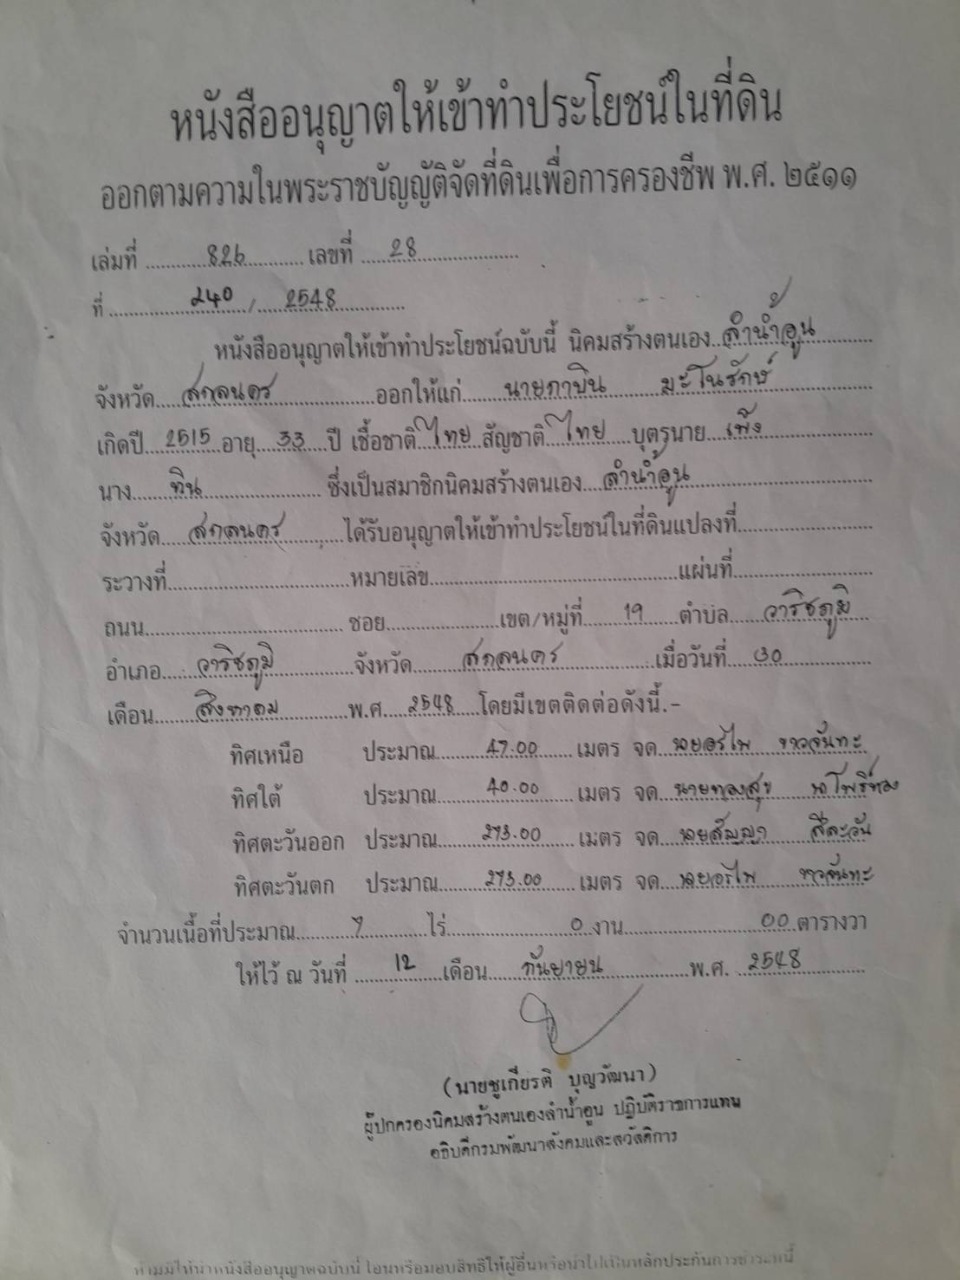 หนังสืออนุญาตให้เข้าทำประโยชน์ในที่ดิน
ออกตามความในพระราชบัญญัติจัดที่ดินเพื่อการครองชีพ พ.ศ. ๒๕๑๑
เล่มที่ 826 เลขที่ 28
ที่ 240 / 2548
หนังสืออนุญาตให้เข้าทำประโยชน์ฉบับนี้ นิคมสร้างตนเอง ลำน้ำอูน
จังหวัด สกลนคร ออกให้แก่ นายภาบิน มะโนรักษ์
เกิดปี 2515 อายุ 33 ปี เชื้อชาติ ไทย สัญชาติ ไทย บุตรนาย เพ็ง
นาง ทิน ซึ่งเป็นสมาชิกนิคมสร้างตนเอง ลำน้ำอูน
จังหวัด สกลนคร ได้รับอนุญาตให้เข้าทำประโยชน์ในที่ดินแปลงที่
ระวางที่ หมายเลข แผ่นที่
ถนน ซอย เขต/หมู่ที่ 19 ตำบล วาริชภูมิ
อำเภอ วาริชภูมิ จังหวัด สกลนคร เมื่อวันที่ 30
เดือน สิงหาคม พ.ศ 2548 โดยมีเขตติดต่อดังนี้.-
ทิศเหนือ ประมาณ 47.00 เมตร จด นายอรไพ ขาวจันทะ
ทิศใต้ ประมาณ 40.00 เมตร จด นายทองสุข นาโพธิ์ทอง
ทิศตะวันออก ประมาณ 273.00 เมตร จด นายสัญญา สีละวัน
ทิศตะวันตก ประมาณ 273.00 เมตร จด นายอรไพ ขาวจันทะ
จำนวนเนื้อที่ประมาณ 7 ไร่ 0 งาน 00 ตารางวา
ให้ไว้ ณ วันที่ 12 เดือน กันยายน พ.ศ. 2548
(นายชูเกียรติ บุญวัฒนา)
ผู้ปกครองนิคมสร้างตนเองลำน้ำอูน ปฏิบัติราชการแทน
อธิบดีกรมพัฒนาสังคมและสวัสดิการ
ห้ามมิให้นำหนังสืออนุญาตฉบับนี้ โอนหรือมอบสิทธิให้ผู้อื่นหรือนำไปเป็นหลักประกันการชำระหนี้